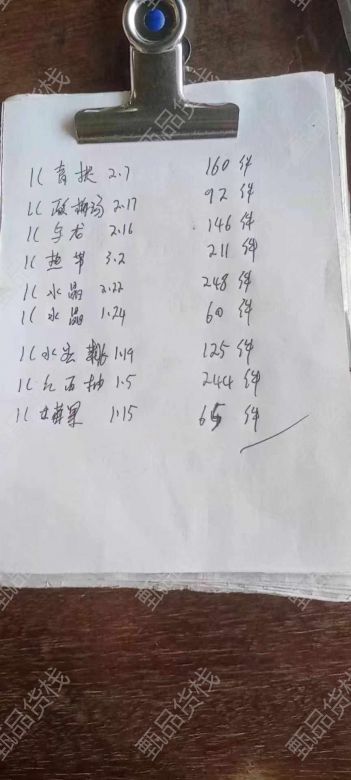 1L 青提 2.7 160件
1L 2.17 92件
1L 2.16 146件
1L 热带 3.2 211件
1L 水晶 2.22 248件
1L 水晶 1.24 60件
1L 水 1.19 125件
1L 红西柚 1.5 244件
1L 苹果 1.15 65件
甄品货栈